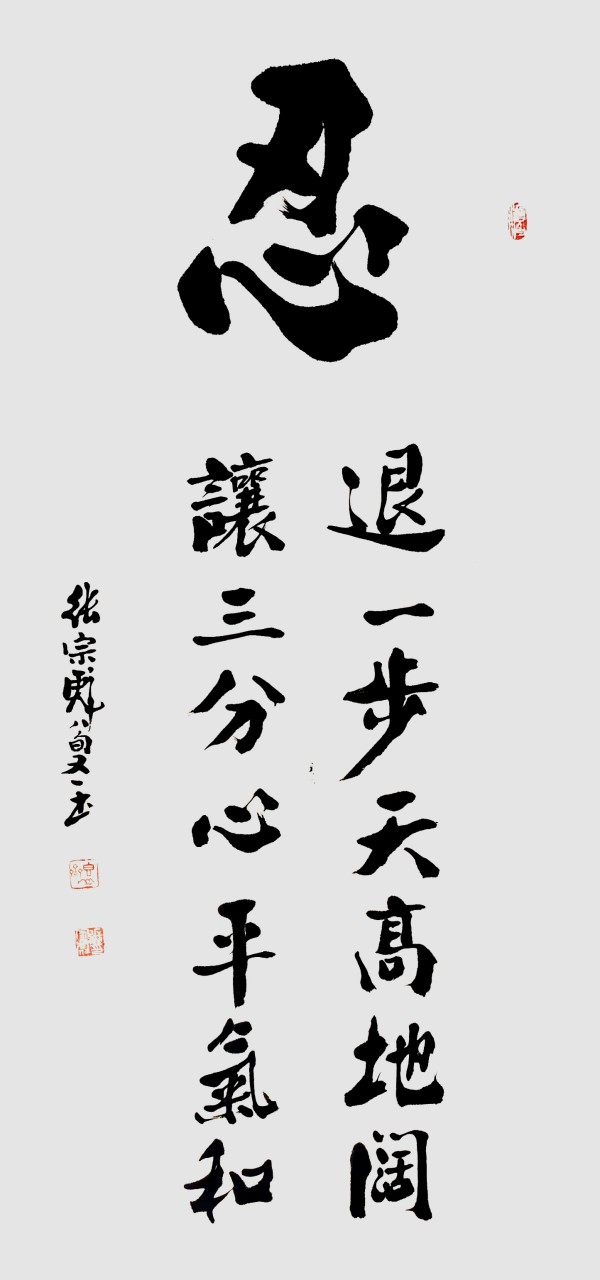 忍
退一步天高地阔
讓三分心平氣和
张宗彪八旬又一书